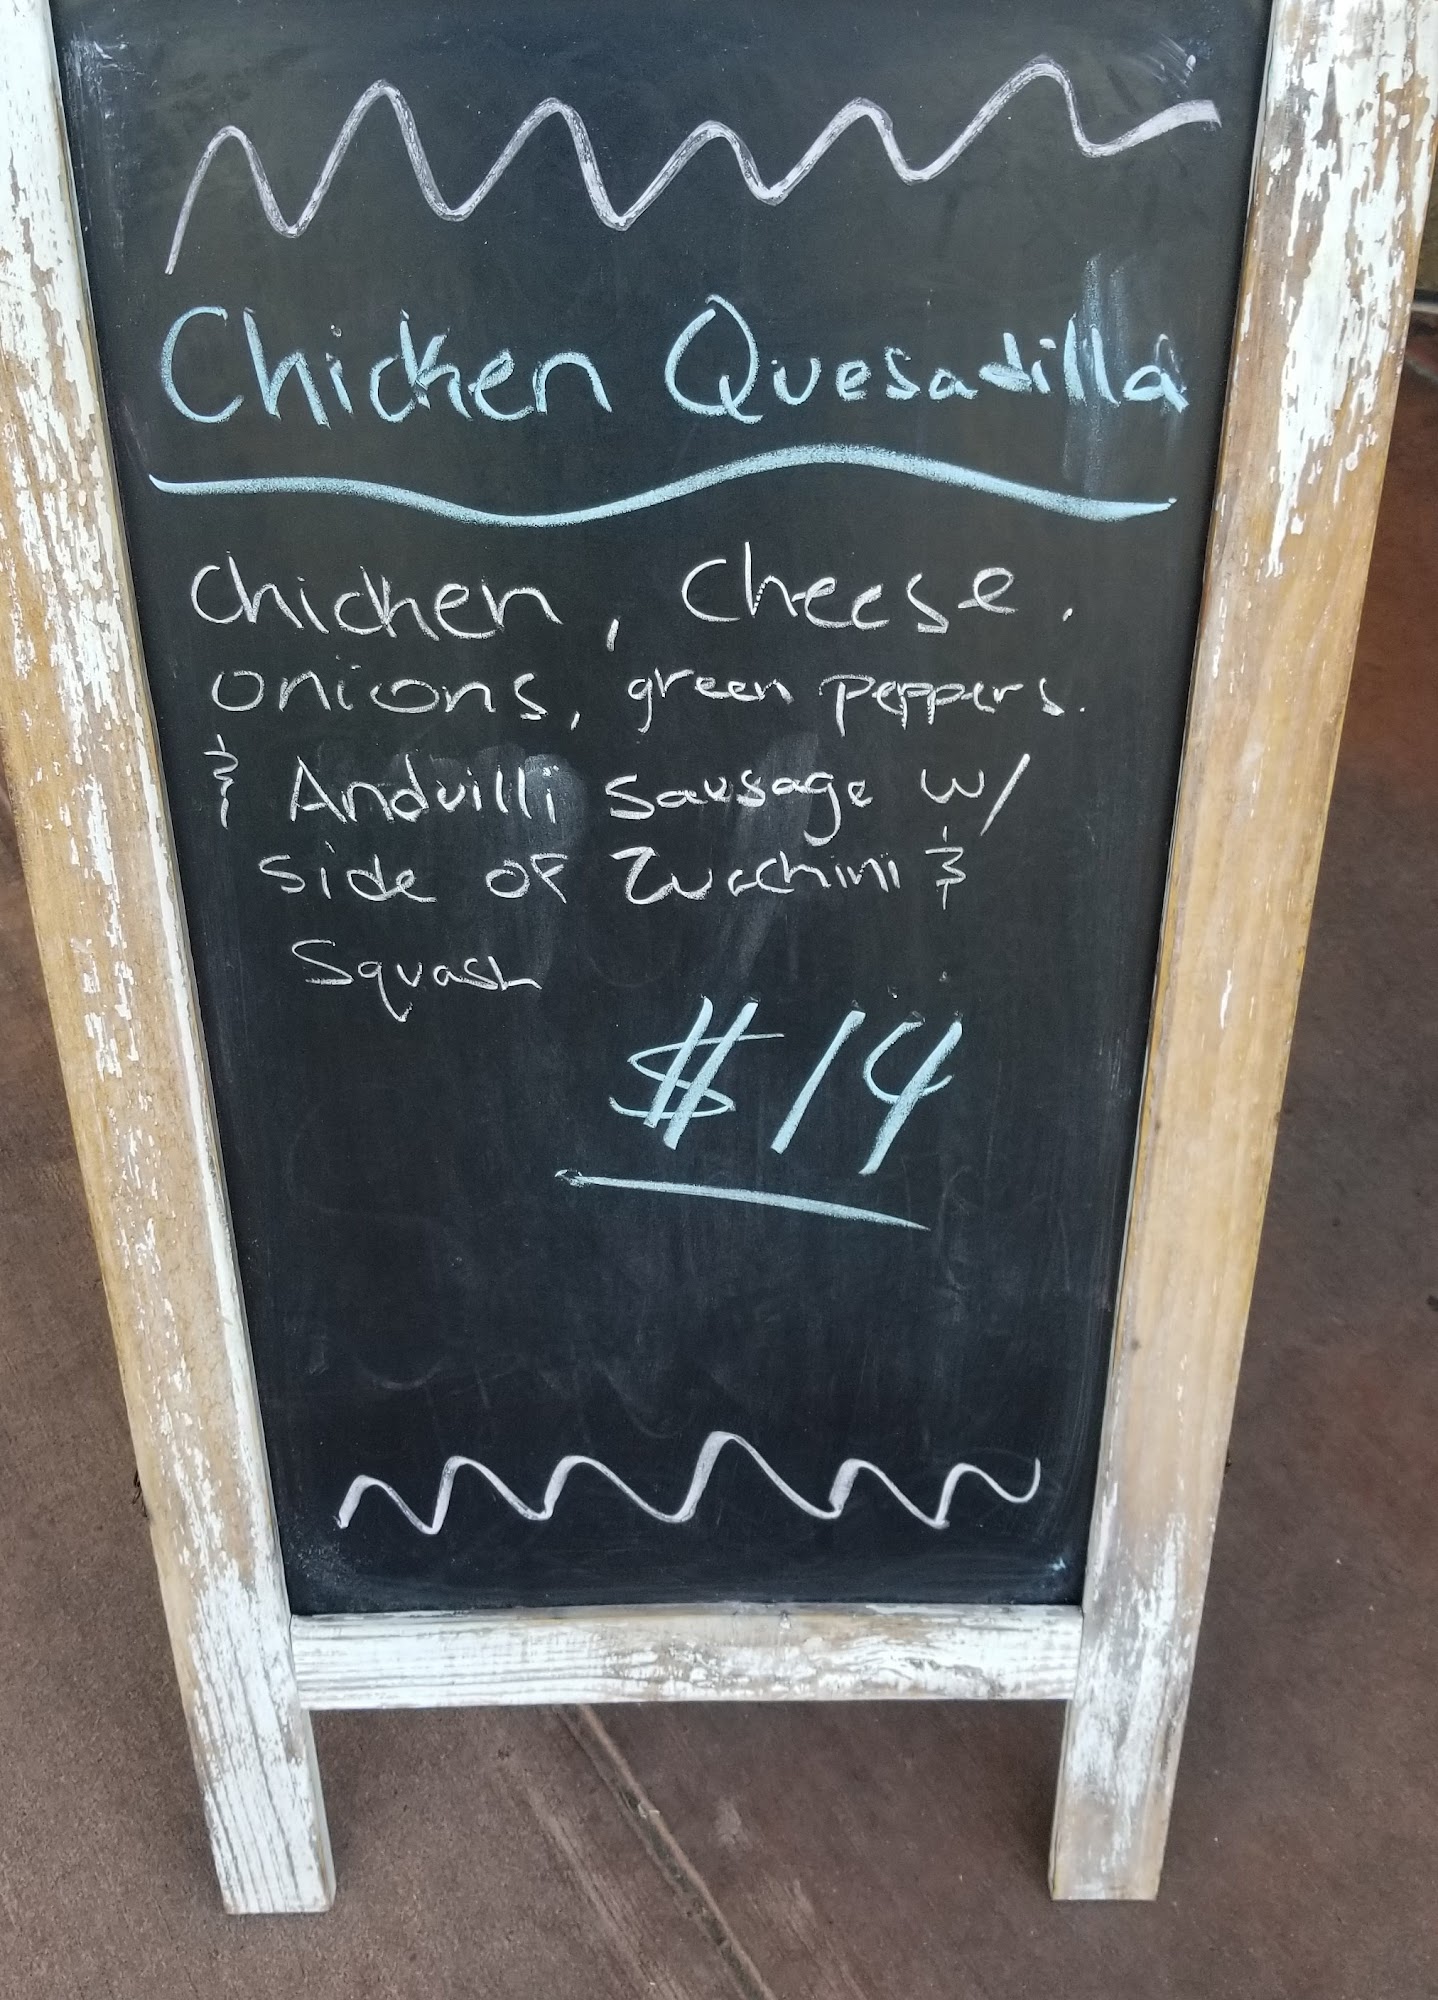 Chicken Quesadilla
chicken, cheese.
onions, green peppers.
& Anduilli sausage w/
side of Zucchini &
Squash
$14